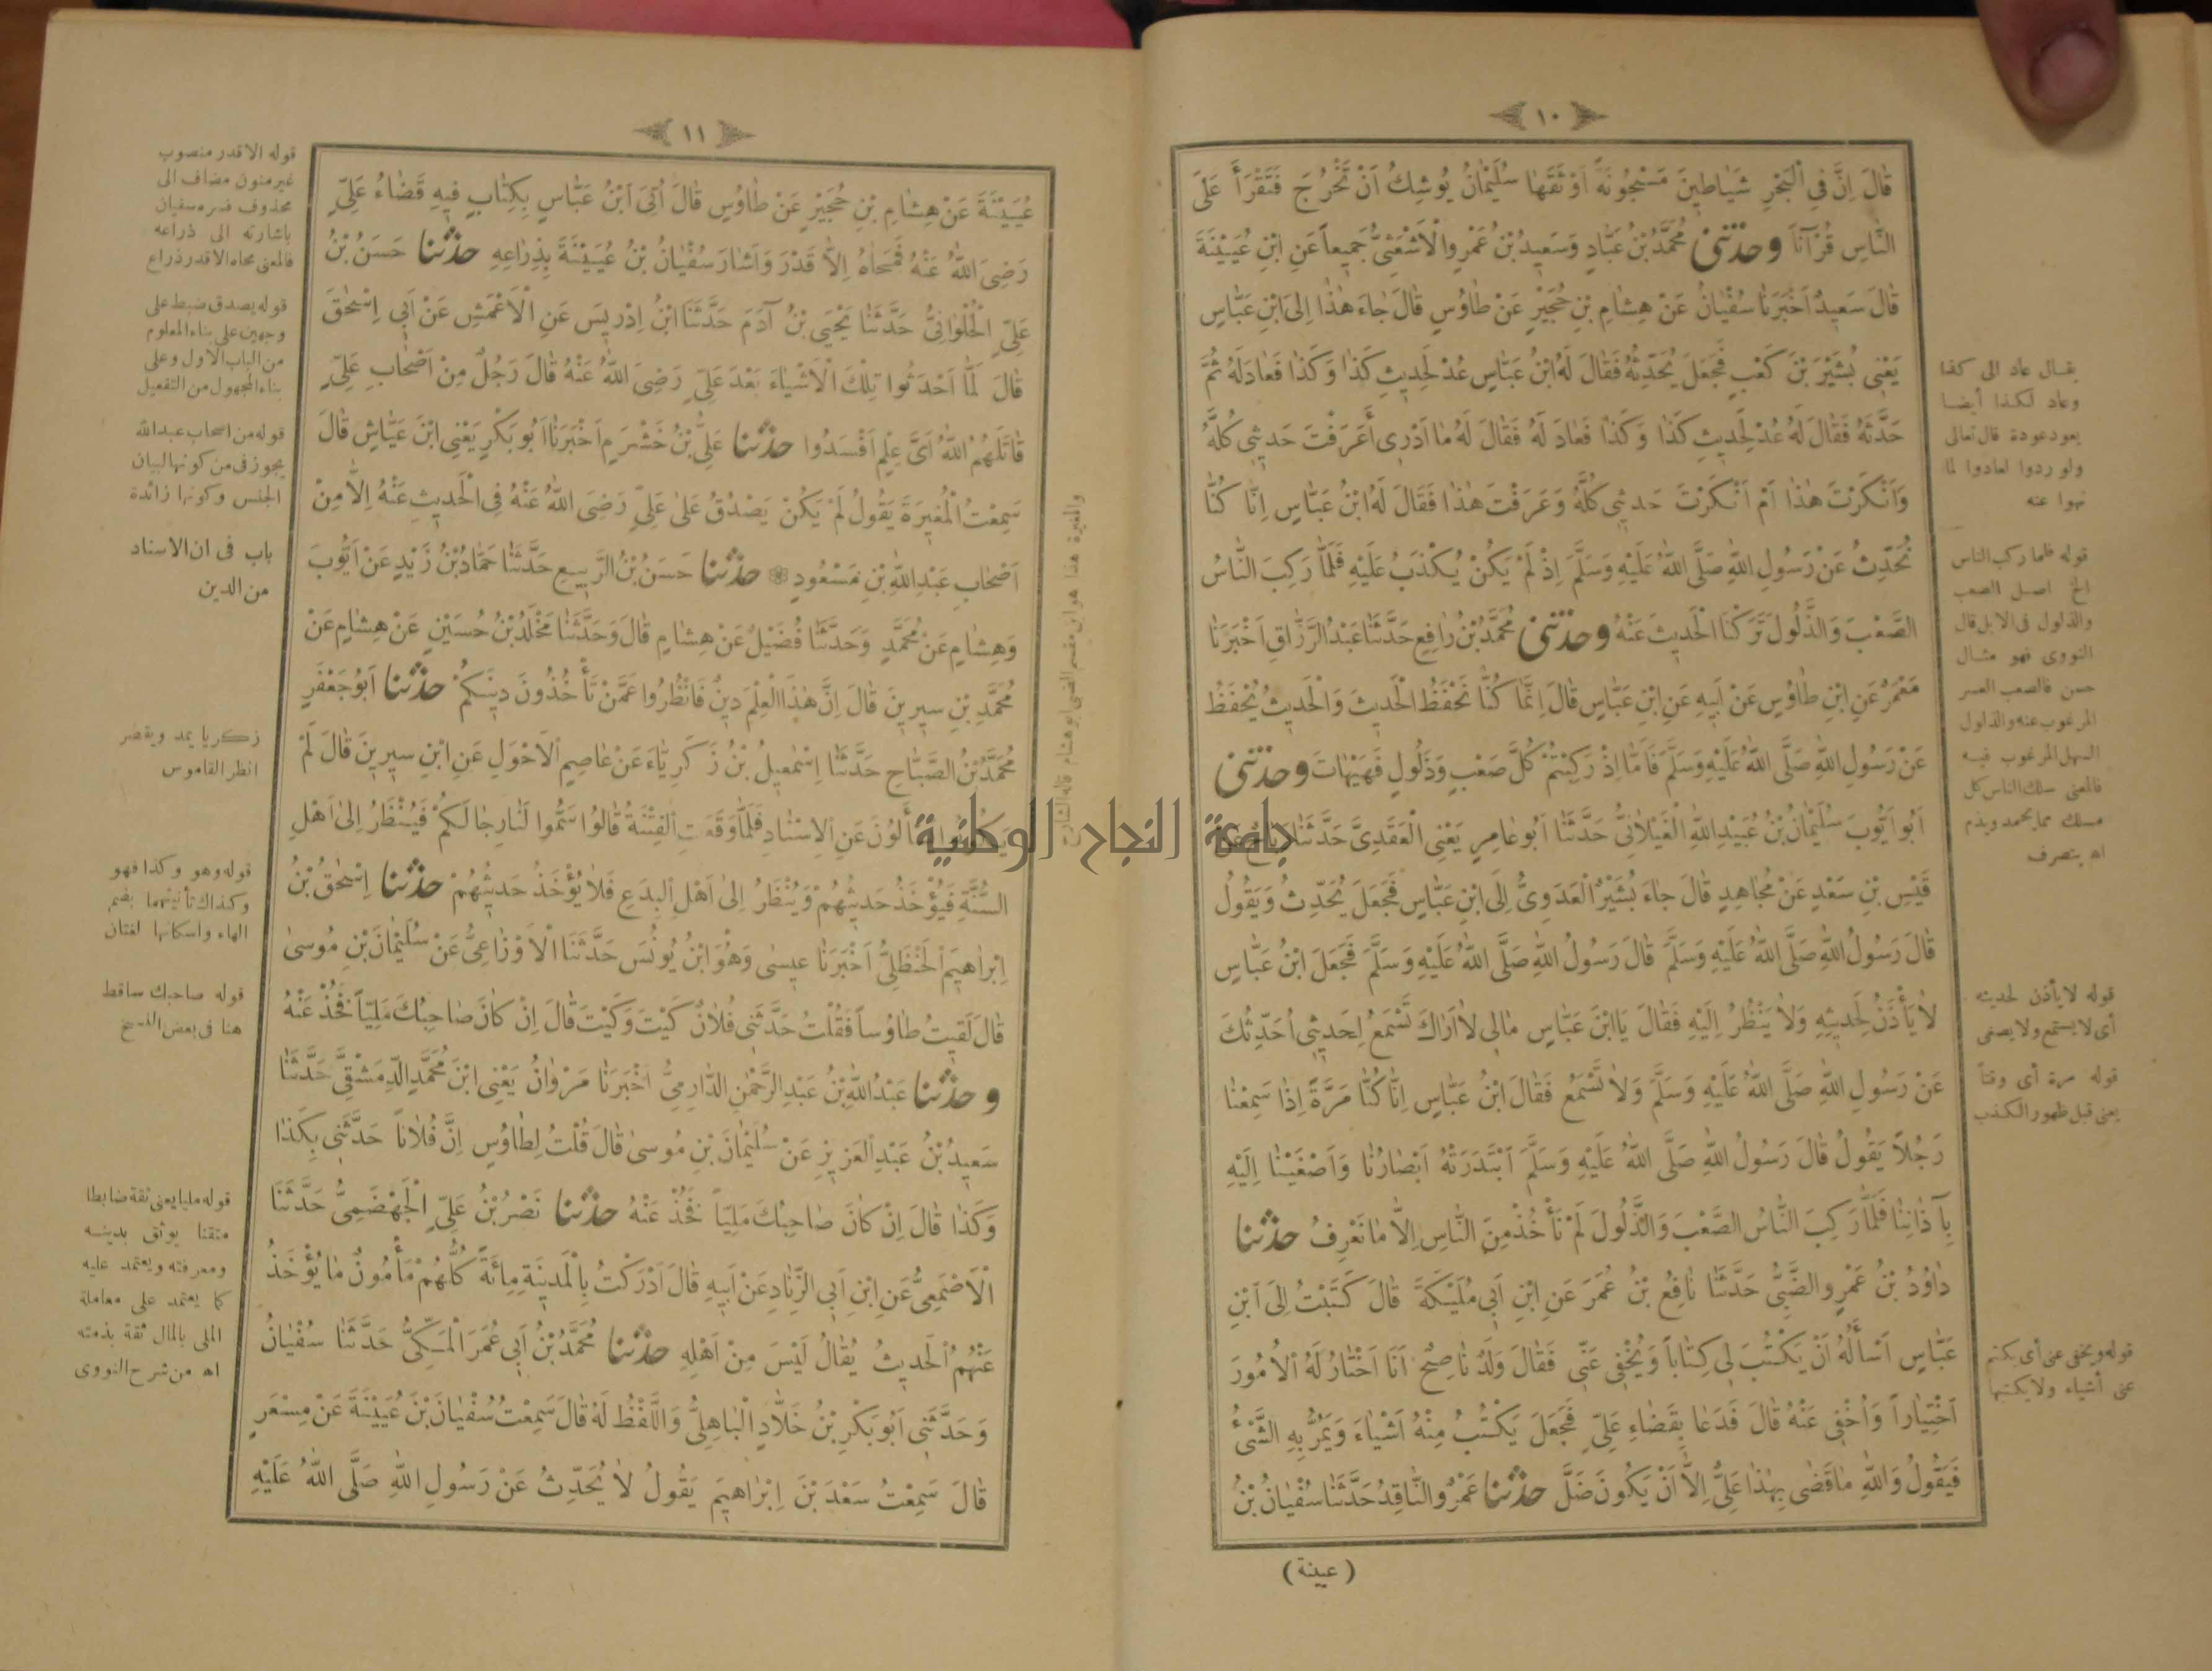 ١٠
قَالَ اِنَّ فِي الْبَحْرِ شَيَاطِينَ مَسْجُونَةً اَوْثَقَهَا سُلَيْمَانُ يُوشِكُ اَنْ تَخْرُجَ فَتَقْرَأَ عَلَى
النَّاسِ قُرْآناً وحدثنى مُحَمَّدُ بْنُ عَبَّادٍ وَسَعِيدُ بْنُ عَمْرٍو الْاَشْعَثِيُّ جَمِيعاً عَنِ ابْنِ عُيَيْنَةَ
قَالَ سَعِيدٌ اَخْبَرَنَا سُفْيَانُ عَنْ هِشَامِ بْنِ حُجَيْرٍ عَنْ طَاوُسٍ قَالَ جَاءَ هٰذَا اِلَى ابْنِ عَبَّاسٍ
يَعْنِي بُشَيْرَ بْنَ كَعْبٍ فَجَعَلَ يُحَدِّثُهُ فَقَالَ لَهُ ابْنُ عَبَّاسٍ عُدْ لِحَدِيثِ كَذَا وَكَذَا فَعَادَ لَهُ ثُمَّ
حَدَّثَهُ فَقَالَ لَهُ عُدْ لِحَدِيثِ كَذَا وَكَذَا فَعَادَ لَهُ فَقَالَ لَهُ مَا اَدْرِي أَعَرَفْتَ حَدِيثِي كُلَّهُ
وَاَنْكَرْتَ هٰذَا اَمْ اَنْكَرْتَ حَدِيثِي كُلَّهُ وَعَرَفْتَ هٰذَا فَقَالَ لَهُ ابْنُ عَبَّاسٍ اِنَّا كُنَّا
نُحَدِّثُ عَنْ رَسُولِ اللّٰهِ صَلَّى اللّٰهُ عَلَيْهِ وَسَلَّمَ اِذْ لَمْ يَكُنْ يُكْذَبُ عَلَيْهِ فَلَمَّا رَكِبَ النَّاسُ
الصَّعْبَ وَالذَّلُولَ تَرَكْنَا الْحَدِيثَ عَنْهُ وحدثنى مُحَمَّدُ بْنُ رَافِعٍ حَدَّثَنَا عَبْدُ الرَّزَّاقِ اَخْبَرَنَا
مَعْمَرٌ عَنِ ابْنِ طَاوُسٍ عَنْ اَبِيهِ عَنِ ابْنِ عَبَّاسٍ قَالَ اِنَّمَا كُنَّا نَحْفَظُ الْحَدِيثَ وَالْحَدِيثُ يُحْفَظُ
عَنْ رَسُولِ اللّٰهِ صَلَّى اللّٰهُ عَلَيْهِ وَسَلَّمَ فَاَمَّا اِذْ رَكِبْتُمْ كُلَّ صَعْبٍ وَذَلُولٍ فَهَيْهَاتَ وحدثنى
اَبُو اَيُّوبَ سُلَيْمَانُ بْنُ عُبَيْدِ اللّٰهِ الْغَيْلَانِيُّ حَدَّثَنَا اَبُو عَامِرٍ يَعْنِي الْعَقَدِيَّ حَدَّثَنَا رَبَاحٌ عَنْ
قَيْسِ بْنِ سَعْدٍ عَنْ مُجَاهِدٍ قَالَ جَاءَ بُشَيْرٌ الْعَدَوِيُّ اِلَى ابْنِ عَبَّاسٍ فَجَعَلَ يُحَدِّثُ وَيَقُولُ
قَالَ رَسُولُ اللّٰهِ صَلَّى اللّٰهُ عَلَيْهِ وَسَلَّمَ قَالَ رَسُولُ اللّٰهِ صَلَّى اللّٰهُ عَلَيْهِ وَسَلَّمَ فَجَعَلَ ابْنُ عَبَّاسٍ
لَا يَأْذَنُ لِحَدِيثِهِ وَلَا يَنْظُرُ اِلَيْهِ فَقَالَ يَا ابْنَ عَبَّاسٍ مَالِي لَا اَرَاكَ تَسْمَعُ لِحَدِيثِي اُحَدِّثُكَ
عَنْ رَسُولِ اللّٰهِ صَلَّى اللّٰهُ عَلَيْهِ وَسَلَّمَ وَلَا تَسْمَعُ فَقَالَ ابْنُ عَبَّاسٍ اِنَّا كُنَّا مَرَّةً اِذَا سَمِعْنَا
رَجُلاً يَقُولُ قَالَ رَسُولُ اللّٰهِ صَلَّى اللّٰهُ عَلَيْهِ وَسَلَّمَ اَبْتَدَرَتْهُ اَبْصَارُنَا وَاَصْغَيْنَا اِلَيْهِ
بِآذَانِنَا فَلَمَّا رَكِبَ النَّاسُ الصَّعْبَ وَالذَّلُولَ لَمْ نَأْخُذْ مِنَ النَّاسِ اِلَّا مَا نَعْرِفُ حدثنا
دَاوُدُ بْنُ عَمْرٍو الضَّبِّيُّ حَدَّثَنَا نَافِعُ بْنُ عُمَرَ عَنِ ابْنِ اَبِي مُلَيْكَةَ قَالَ كَتَبْتُ اِلَى اَبْنِ
عَبَّاسٍ اَسْأَلُهُ اَنْ يَكْتُبَ لِي كِتَاباً وَيُخْفِي عَنِّي فَقَالَ وَلَدٌ نَاصِحٌ اَنَا اَخْتَارُ لَهُ الْاُمُورَ
اَخْتِيَاراً وَاُخْفِي عَنْهُ قَالَ فَدَعَا بِقَضَاءِ عَلِيٍّ فَجَعَلَ يَكْتُبُ مِنْهُ اَشْيَاءَ وَيَمُرُّ بِهِ الشَّيْءُ
فَيَقُولُ وَاللّٰهِ مَا قَضٰى بِهٰذَا عَلِيٌّ اِلَّا اَنْ يَكُونَ ضَلَّ حدثنا عَمْرٌو النَّاقِدُ حَدَّثَنَا سُفْيَانُ بْنُ
(عيينة)
يقال عاد الى كذا
وعاد لكذا أيضا
يعود عودة قال تعالى
ولو ردوا لعادوا لما
نهوا عنه
قوله فلما ركب الناس
الخ اصل الصعب
والذلول فى الابل قال
النووى فهو مثال
حسن فالصعب العسر
المرغوب عنه والذلول
السهل المرغوب فيه
فالمعنى سلك الناس كل
مسلك مما يحمد ويذم
اه بتصرف
قوله لا يأذن لحديثه
أى لا يستمع ولا يصغى
قوله مرة أى وقتاً
يعنى قبل ظهور الكذب
قوله ويخفى عنى أى يكتم
عنى أشياء ولا يكتبها
١١
عُيَيْنَةَ عَنْ هِشَامِ بْنِ حُجَيْرٍ عَنْ طَاوُسٍ قَالَ اُتِيَ ابْنُ عَبَّاسٍ بِكِتَابٍ فِيهِ قَضَاءُ عَلِيٍّ
رَضِيَ اللّٰهُ عَنْهُ فَمَحَاهُ اِلَّا قَدْرَ وَاَشَارَ سُفْيَانُ بْنُ عُيَيْنَةَ بِذِرَاعِهِ حدثنا حَسَنُ بْنُ
عَلِيٍّ الْحُلْوَانِيُّ حَدَّثَنَا يَحْيَى بْنُ آدَمَ حَدَّثَنَا ابْنُ اِدْرِيسَ عَنِ الْاَعْمَشِ عَنْ اَبِي اِسْحٰقَ
قَالَ لَمَّا اَحْدَثُوا تِلْكَ الْاَشْيَاءَ بَعْدَ عَلِيٍّ رَضِيَ اللّٰهُ عَنْهُ قَالَ رَجُلٌ مِنْ اَصْحَابِ عَلِيٍّ
قَاتَلَهُمُ اللّٰهُ اَيَّ عِلْمٍ اَفْسَدُوا حدثنا عَلِيُّ بْنُ خَشْرَمٍ اَخْبَرَنَا اَبُو بَكْرٍ يَعْنِي ابْنَ عَيَّاشٍ قَالَ
سَمِعْتُ الْمُغِيرَةَ يَقُولُ لَمْ يَكُنْ يَصْدُقُ عَلٰى عَلِيٍّ رَضِيَ اللّٰهُ عَنْهُ فِي الْحَدِيثِ عَنْهُ اِلَّا مِنْ
اَصْحَابِ عَبْدِ اللّٰهِ بْنِ مَسْعُودٍ ❁ حدثنا حَسَنُ بْنُ الرَّبِيعِ حَدَّثَنَا حَمَّادُ بْنُ زَيْدٍ عَنْ اَيُّوبَ
وَهِشَامٍ عَنْ مُحَمَّدٍ وَحَدَّثَنَا فُضَيْلٌ عَنْ هِشَامٍ قَالَ وَحَدَّثَنَا مَخْلَدُ بْنُ حُسَيْنٍ عَنْ هِشَامٍ عَنْ
مُحَمَّدِ بْنِ سِيرِينَ قَالَ اِنَّ هٰذَا الْعِلْمَ دِينٌ فَانْظُرُوا عَمَّنْ تَأْخُذُونَ دِينَكُمْ حدثنا اَبُو جَعْفَرٍ
مُحَمَّدُ بْنُ الصَّبَّاحِ حَدَّثَنَا اِسْمٰعِيلُ بْنُ زَكَرِيَّاءَ عَنْ عَاصِمٍ الْاَحْوَلِ عَنِ ابْنِ سِيرِينَ قَالَ لَمْ
يَكُونُوا يَسْأَلُونَ عَنِ الْاِسْنَادِ فَلَمَّا وَقَعَتِ الْفِتْنَةُ قَالُوا سَمُّوا لَنَا رِجَالَكُمْ فَيُنْظَرُ اِلٰى اَهْلِ
السُّنَّةِ فَيُؤْخَذُ حَدِيثُهُمْ وَيُنْظَرُ اِلٰى اَهْلِ الْبِدَعِ فَلَا يُؤْخَذُ حَدِيثُهُمْ حدثنا اِسْحٰقُ بْنُ
اِبْرَاهِيمَ الْحَنْظَلِيُّ اَخْبَرَنَا عِيسٰى وَهُوَ ابْنُ يُونُسَ حَدَّثَنَا الْاَوْزَاعِيُّ عَنْ سُلَيْمَانَ بْنِ مُوسٰى
قَالَ لَقِيتُ طَاوُساً فَقُلْتُ حَدَّثَنِي فُلَانٌ كَيْتَ وَكَيْتَ قَالَ اِنْ كَانَ صَاحِبُكَ مَلِيّاً فَخُذْ عَنْهُ
وحدثنا عَبْدُ اللّٰهِ بْنُ عَبْدِ الرَّحْمٰنِ الدَّارِمِيُّ اَخْبَرَنَا مَرْوَانُ يَعْنِي ابْنَ مُحَمَّدٍ الدِّمَشْقِيَّ حَدَّثَنَا
سَعِيدُ بْنُ عَبْدِ الْعَزِيزِ عَنْ سُلَيْمَانَ بْنِ مُوسٰى قَالَ قُلْتُ لِطَاوُسٍ اِنَّ فُلَاناً حَدَّثَنِي بِكَذَا
وَكَذَا قَالَ اِنْ كَانَ صَاحِبُكَ مَلِيّاً فَخُذْ عَنْهُ حدثنا نَصْرُ بْنُ عَلِيٍّ الْجَهْضَمِيُّ حَدَّثَنَا
الْاَصْمَعِيُّ عَنِ ابْنِ اَبِي الزِّنَادِ عَنْ اَبِيهِ قَالَ اَدْرَكْتُ بِالْمَدِينَةِ مِائَةً كُلُّهُمْ مَأْمُونٌ مَا يُؤْخَذُ
عَنْهُمُ الْحَدِيثُ يُقَالُ لَيْسَ مِنْ اَهْلِهِ حدثنا مُحَمَّدُ بْنُ اَبِي عُمَرَ الْمَكِّيُّ حَدَّثَنَا سُفْيَانُ
وَحَدَّثَنِي اَبُو بَكْرِ بْنُ خَلَّادٍ الْبَاهِلِيُّ وَاللَّفْظُ لَهُ قَالَ سَمِعْتُ سُفْيَانَ بْنَ عُيَيْنَةَ عَنْ مِسْعَرٍ
قَالَ سَمِعْتُ سَعْدَ بْنَ اِبْرَاهِيمَ يَقُولُ لَا يُحَدِّثُ عَنْ رَسُولِ اللّٰهِ صَلَّى اللّٰهُ عَلَيْهِ
والمغيرة هذا هو ابن مقسم الضبى ابو هشام قاله الشارح
قوله الا قدر منصوب
غير منون مضاف الى
محذوف فسره سفيان
باشارته الى ذراعه
فالمعنى محاه الا قدر ذراع
قوله يصدق ضبط على
وجهين على بناء المعلوم
من الباب الاول وعلى
بناء المجهول من التفعيل
قوله من اصحاب عبدالله
يجوز فى من كونها لبيان
الجنس وكونها زائدة
باب فى ان الاسناد
من الدين
زكريا يمد ويقصر
انظر القاموس
قوله وهو وكذا فهو
وكذلك تأنيثهما بضم
الهاء واسكانها لغتان
قوله صاحبك ساقط
هنا فى بعض النسخ
قوله مليا يعنى ثقة ضابطا
متقنا يوثق بدينه
ومعرفته ويعتمد عليه
كما يعتمد على معاملة
الملى بالمال ثقة بذمته
اه من شرح النووى
جامعة النجاح الوطنية